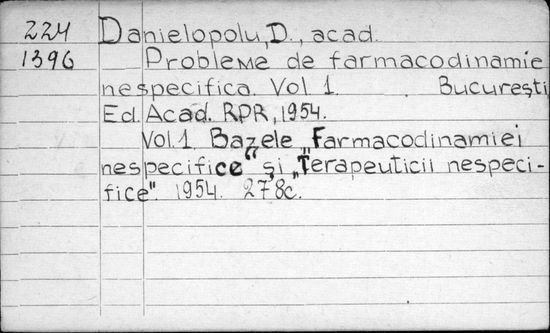 224 Danielopolu, D., acad.
1396 Probleme de farmacodinamie
nespecifica. Vol 1. București
Ed. Acad. RPR, 1954.
Vol. 1. Bazele „Farmacodinamiei
nespecifice“ și „Terapeuticii nespeci-
fice“. 1954. 278c.